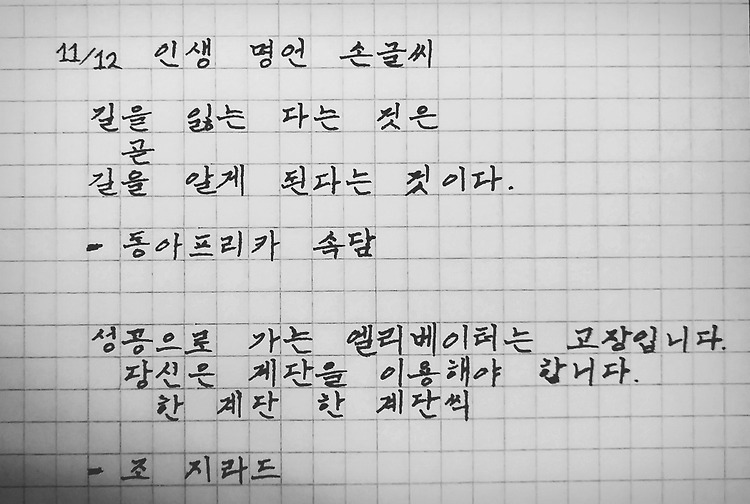 11/12 인생 명언 손글씨
길을 잃는 다는 것은
곧
길을 알게 된다는 것이다.
- 동아프리카 속담
성공으로 가는 엘리베이터는 고장입니다.
당신은 계단을 이용해야 합니다.
한 계단 한 계단씩
- 조 지라드